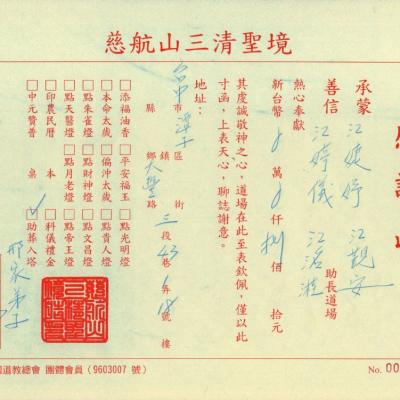 慈航山三清聖境
感謝狀
承蒙
善信 江婕妤 江覲安
江婷儀
助長道場
熱心奉獻
新台幣 萬 仟 佰 拾元
其虔誠敬神之心，道場在此至表欽佩，僅以此
寸函，上表天心，聊誌謝意。
地址：台中 縣市 潭子 鄉鎮區 大豐 街路 三段 43 巷 6 弄 18 號 樓
□添福油香 □平安福玉 □點光明燈
□本命太歲 □偏沖太歲 □點貴人燈
□點朱雀燈 □點財神燈 □點文昌燈
□點天醫燈 □點月老燈 □點帝王燈
□印農民曆 本 □科儀禮金
□中元贊普 桌 □助葬入塔
邢家弟子
國道教總會 團體會員（9603007 號）
No. 00